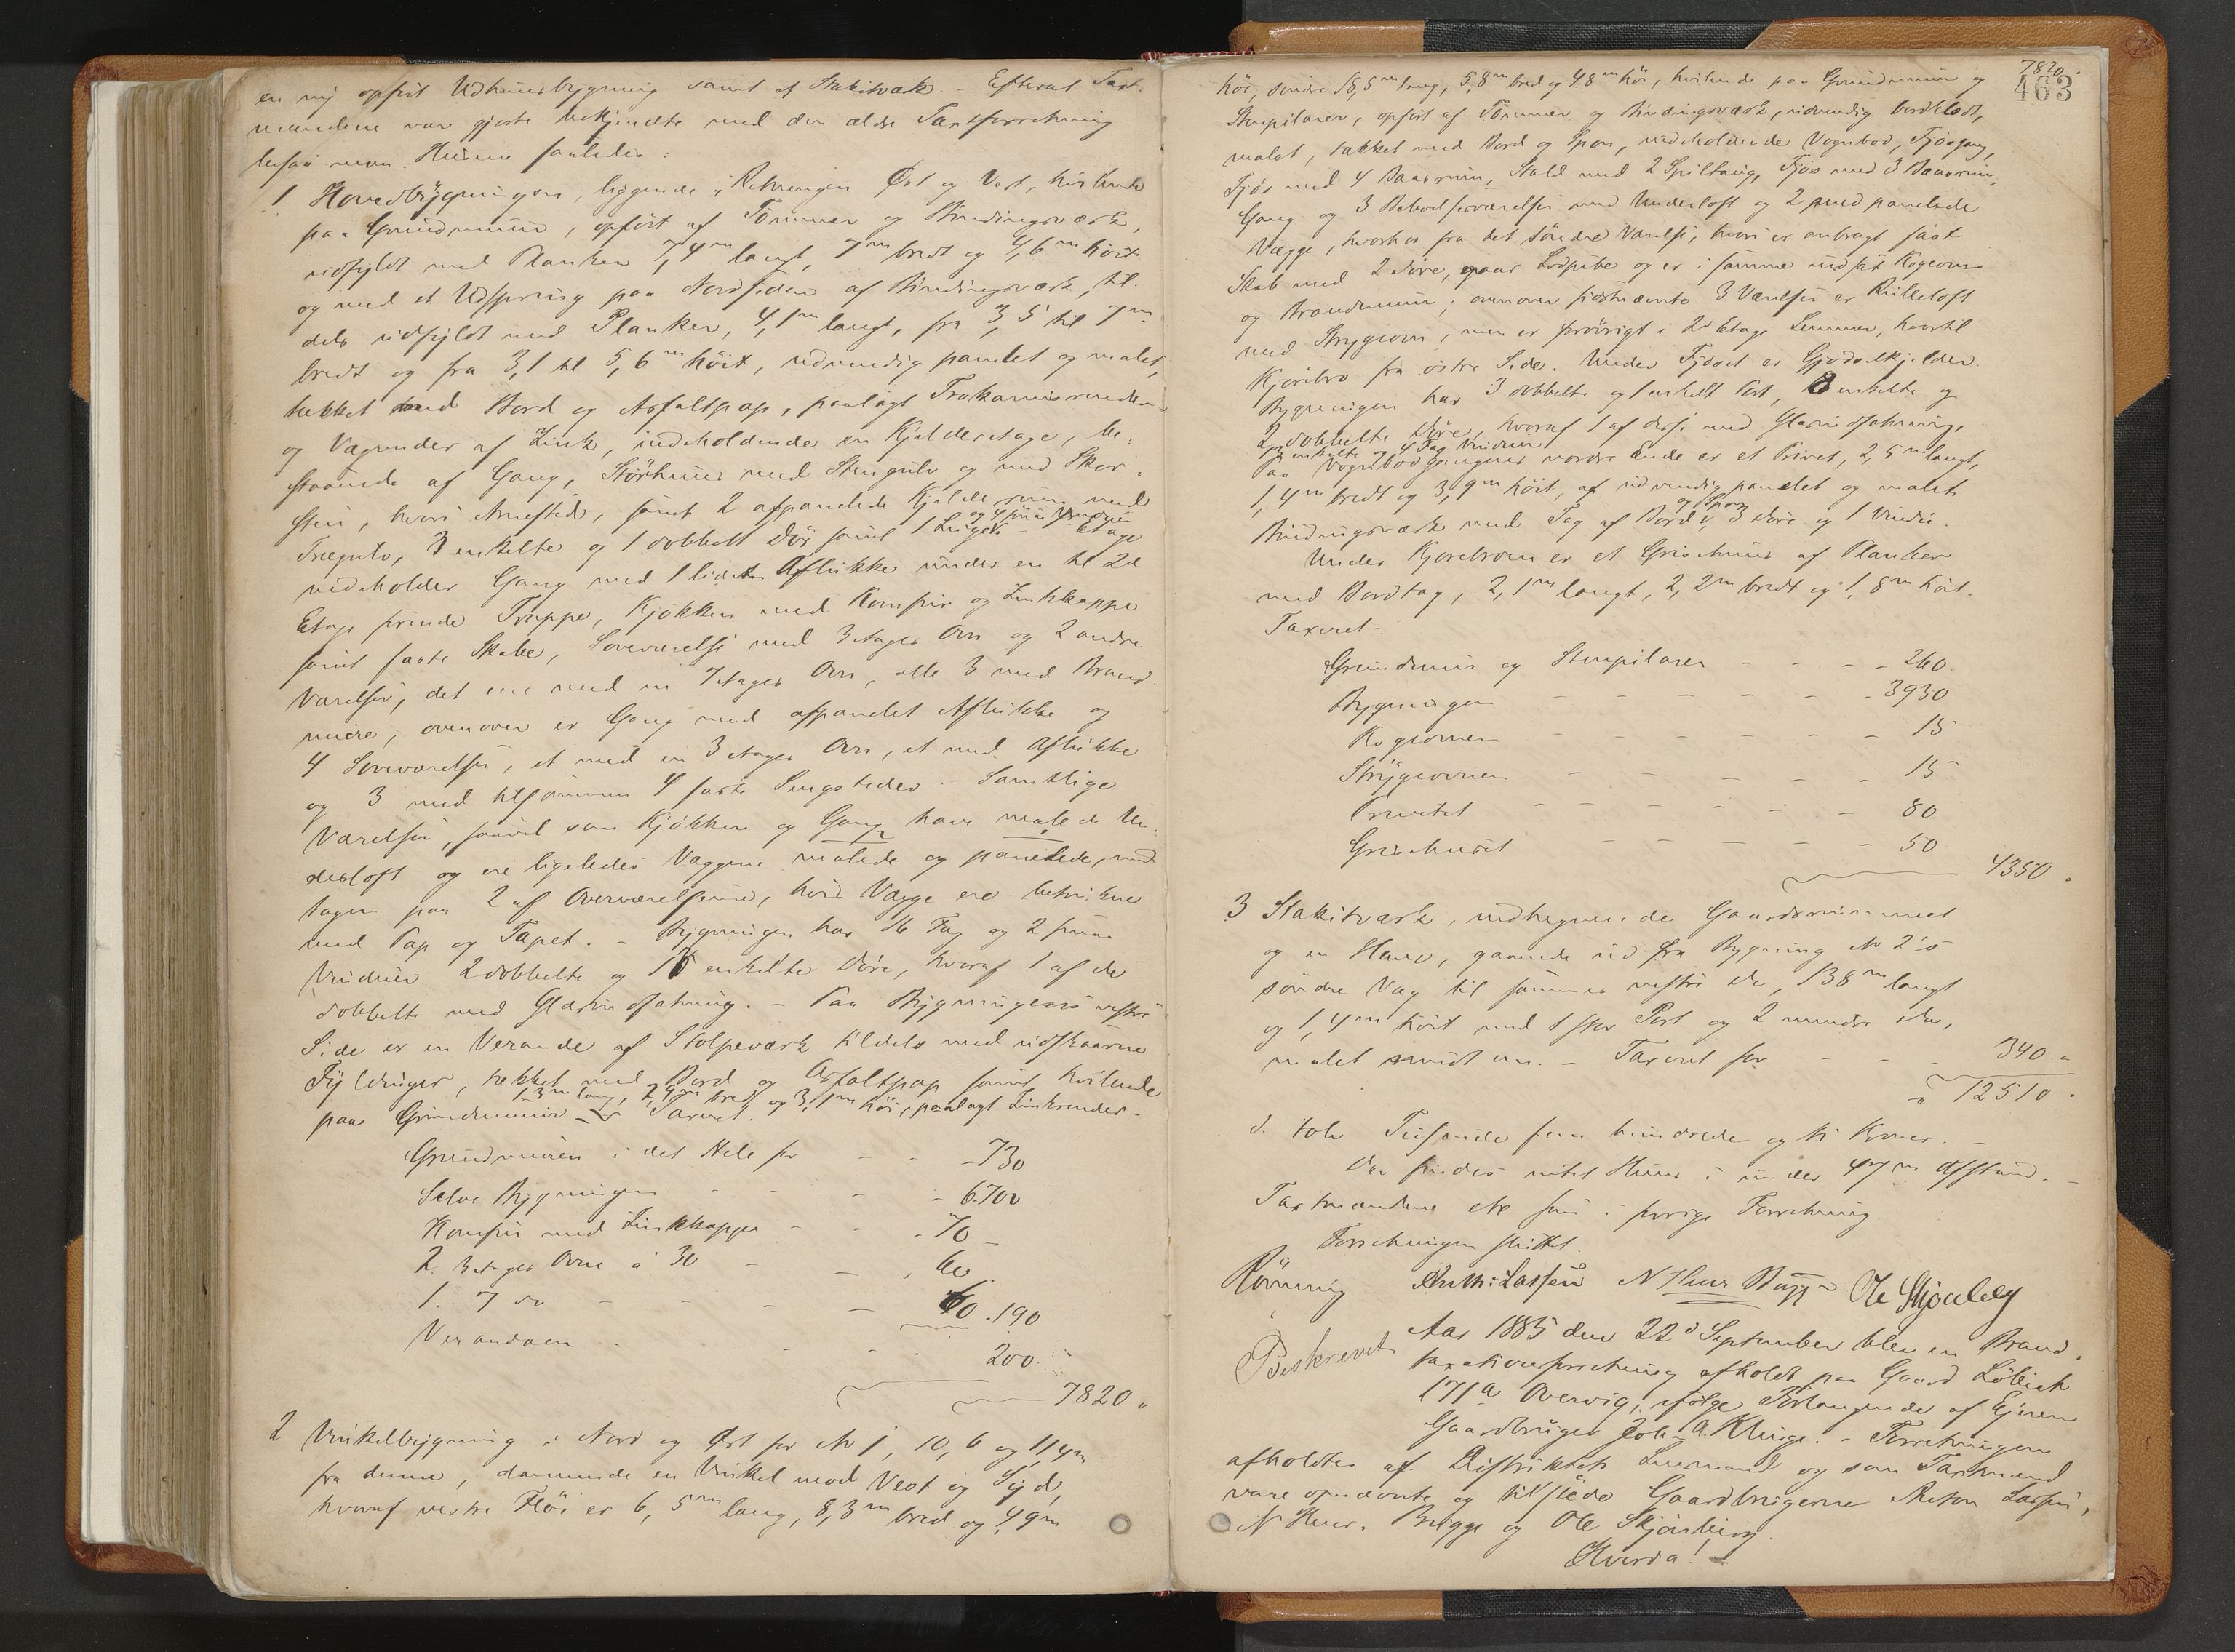 en ny opført Udhuusbygning samt et Stakitværk. – Efterat Taxt-
mændene vare gjorte bekjendte med den ældre Taxtforretning
besaa man Husene saaledes:
1 Hovedbygningen, liggende i Retningen Øst og Vest, hvilende
paa Grundmuur, opført af Tømmer og Bindingsværk,
udfyldt med Planker 7,4 m langt, 7 m bredt og 4,6 m høit
og med et Udspring paa Nordsiden af Bindingsværk, til-
dels udfyldt med Planker, 4,1 m langt, fra 3,5 til 7 m
bredt og fra 3,1 til 5,6 m høit, udvendig panelet og malet,
tækket med Bord og Asfaltpap, paalagt
og Vægrender af Zink, indeholdende en Kjelderetage, be-
staaende af Gang, Størhuus med Steengulv og med Skor-
sten, hvori Arnested, samt 2 afpanelede Kjelderrum med
og 4 smaa Vinduer
Trægulv, 3 enkelte og 1 dobbelt Dør samt 1 Luge. – Etage
indeholder Gang med 1 lidet Aflukke under en til 2d
Etage førende Trappe, Kjøkken med Komfur og Zinkkappe
samt faste Skabe, Soveværelse med 3 etages Ovn og 2 andre
Værelser, det ene med en 7 etages Ovn, alle 3 med Brand-
mure, ovenover er Gang med afpanelet Aflukke og
4 Soveværelser, et med en 3 etages Ovn, et med Aflukke
og 3 med tilsammen 4 faste Sengesteder – Samtlige
Værelser, saavel som Kjøkken og Gang have malede Un-
derloft og ere ligeledes Væggene malede og panelede, und-
tagen paa 2 af Overværelserne, hvis Vægge ere betrukne
med Pap og Tapet. – Bygningen har 16 Fag og 2 smaa
Vinduer 2 dobbelte og 15 enkelte Døre, hvoraf 1 af de
dobbelte med Glasindfatning. – Paa Bygningens vestre
Side er en Verande af Stolpeværk tildels med udskaarne
Fyldinger, tækket med Bord og Asfaltpap samt hvilende
1,3 m lang, 2,9 m bred og 3,1 m høi, paalagt Zinkrender. –
paa Grundmuur – Taxeret:
Grundmuren i det Hele for – – 730
Selve Bygningen – – – 6700
Komfur med Zinkkappe – – 70
2 3 etages Ovne á 30 – – 60
1. 7 do – – – – 60 . 190
Verandaen – – – 200
7820 „
2 Vinkelbygning i Nord og Øst for No 1, 10,6 og 11,4 m
fra denne, dannende en Vinkel mod Vest og Syd,
hvoraf vestre Fløi er 6,5 m lang, 8,3 m bred og 4,9 m
7820.
463
høi, søndre 18,5 m lang, 5,8 m bred og 4,8 m høi, hvilende paa Grundmuur og
Steenpilarer, opført af Tømmer og Bindingsværk, udvendig bordklædt,
malet, tækket med Bord og Spon, indeholdende Vognbod, Fjøsgang,
Fjøs med 4 Baasrum, Stald med 2 Spiltaug, Fjøs med 3 Baasrum,
Gang og 3 Beboelsesværelser med Underloft og 2 med panelede
Vægge, hvorhos fra det søndre Værelse, hvori er anbragt fast
Skab med 2 Døre, gaar Lodpibe og er i samme indsat Kogeovn
og Brandmuur; ovenover sidstnævnte 3 Værelser er Rulleloft
med Strygeovn, men er forøvrigt i 2d Etage Lemmer, hvortil
Kjørebro fra østre Side. Under Fjøset er Gjødselkjelder.
Bygningen har 3 dobbelte og 1 enkelt Port, 8 enkelte og
2 dobbelte Døre, hvoraf 1 af disse med Glasindfatning,
enkelte og 4 Fag Vinduer
Paa Vognbodbygningens nordre Ende er et Privet, 2,5 m langt,
1,4 m bredt og 3,9 m høit, af udvendig panelet og malet
og Spon
Bindingsværk med Tag af Bord, 3 Døre og 1 Vindue.
Under Kjørebroen er et Grisehuus af Planker
med Bordtag, 2,1 m langt, 2,2 m bredt og 1,8 m høit.
Taxeret:
Grundmuur og Stenpilarer – – – 260
Bygningen – – – – – 3930
Kogeovnen – – – – – 15
Strygeovnen – – – – – 15
Privetet – – – – – 80
Grisehuset – – – – – 50
4350 „
3 Stakitværk, indhegnende Gaardsrummet
og en Have, gaaende ud fra Bygning No 2's
søndre Væg til sammes vestre do, 138 m langt
og 1,4 m høit med 1 stor Port og 2 mindre do,
malet rundt om. – Taxeret for – – – 340 „
12510 „
d. tolv Tusinde fem hundrede og ti Kroner. –
Der findes intet Huus i under 47 m Afstand. –
Taxtmændene etc som i forrige Forretning.
Forretningen sluttet.
Rønning Anth: Lassen N Hur Bugge Ole Skjønberg
Beskrevet
Aar 1885 den 22d September blev en Brand-
taxationsforretning afholdt paa Gaard Løbenr
171a Overvig, ifølge Forlangende af Ejeren
Gaardbruger Joh. A. Klinge. – Forretningen
afholdtes af Distriktets Lensmand og som Taxtmænd
vare opnævnte og tilstede Gaardbrugerne Anton Lassen,
N Hur. Bugge og Ole Skjønberg.
Hvorda! –